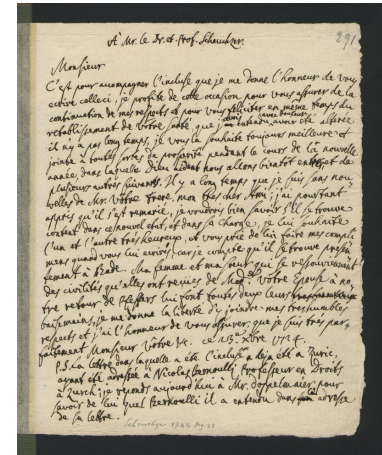 A Mr. le Dr. et Prof. Scheuchzer.
291
Monsieur
C'est pour accompagner l'incluse que je me donne l'honneur de vous
ecrire celleci, je profite de cette occasion pour vous assurer de la
continuation de mes respects et pour vous feliciter en même temps du
retablissement de votre santé que j'ai avec douleur entendu avoir été alterée
il n'y a pas long temps, je vous la souhaite toujours meilleure et
jointe à toutes sortes de prosperité pendant le cours de la nouvelle
année, dans laquelle Dieu aidant nous allons bientôt entrer et de
plusieurs autres suivants. Il y a long temps que je suis sans nou-
velles de Mr. Votre Frere, mon très cher Ami; j'ai pourtant
appris qu'il s'est remarié, je voudrois bien savoir s'il se trouve
content dans ce nouvel etat, et dans sa charge, je lui souhaite
l'un et l'autre très heureux, et vous prie de lui faire mes compli-
mens quand vous lui ecrirez, car je conte qu'il se trouve presen-
tement à Bade. Ma femme et ma soeur qui se ressouviennent
des civilités qu'elles ont reçues de Mad. votre Epouse à no-
tre retour de Pfeffers lui font toutes deux leurs
baisemains, je me donne la liberté d'y joindre mes très humbles
respects et j'ai l'honneur de vous assurer, que je suis très par-
faitement Monsieur Votre &c. ce 13. Xbre 1724.
P.S. La lettre dans laquelle a été l'incluse a deja été a Zuric,
ayant été adressée à Nicolas Bernoulli Professeur en Droits
à Zurich; je reponds aujourd'hui à Mr. Doppelmaier pour
savoir de lui quel Bernoulli il a entendu dans l'adresse
de sa lettre.
Scheuchzer